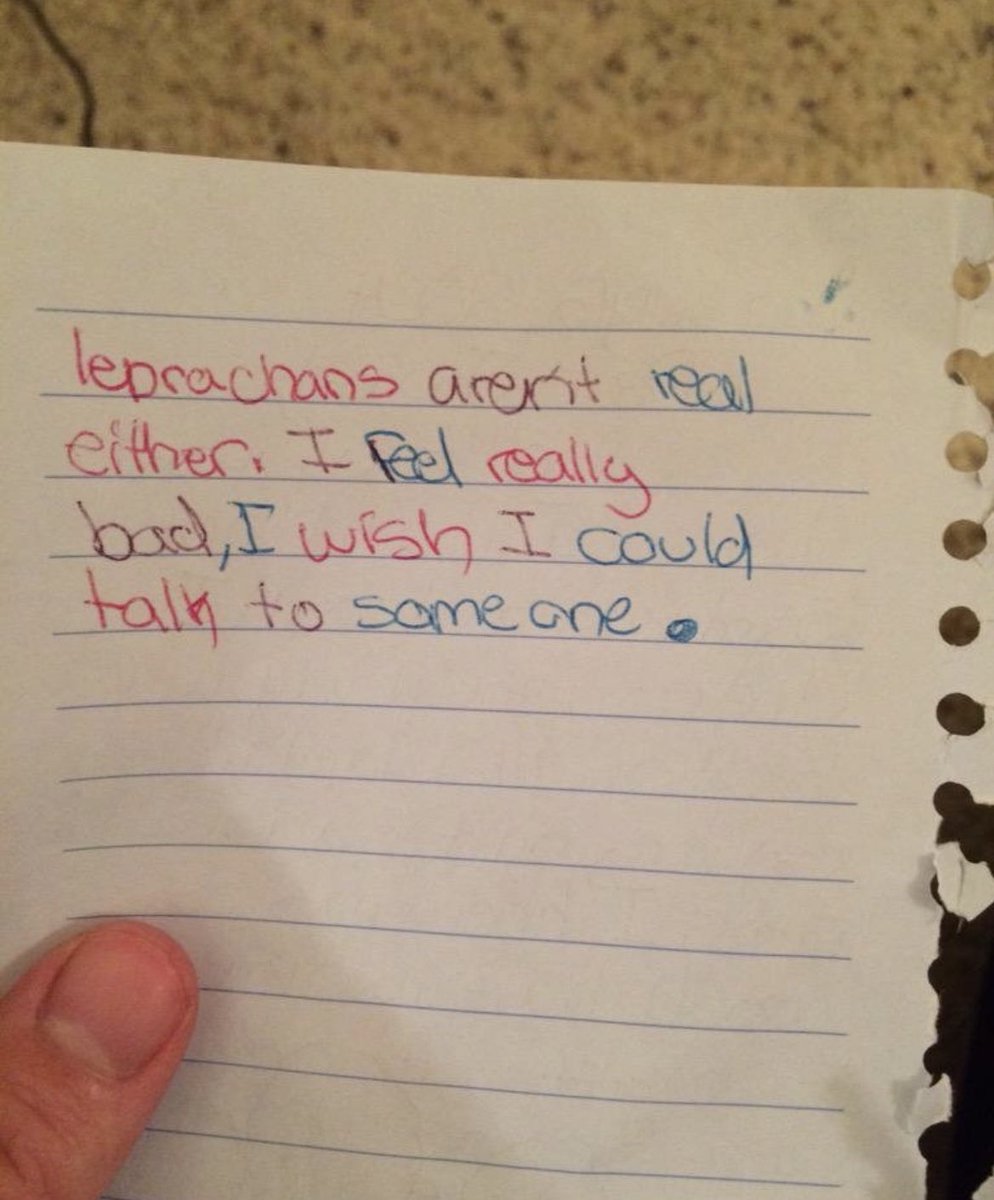 leprachans aren't real
either. I Feel really
bad, I wish I could
talk to some one.